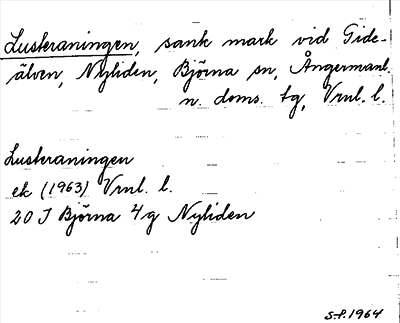 Lusteraningen, sank mark vid Gide-
älven, Nyliden, Björna sn, Ångermanl.
n. doms. tg, Vrnl. l.
Lusteraningen
ek (1963) Vrnl. l.
20 J Björna 4g Nyliden
S.P. 1964